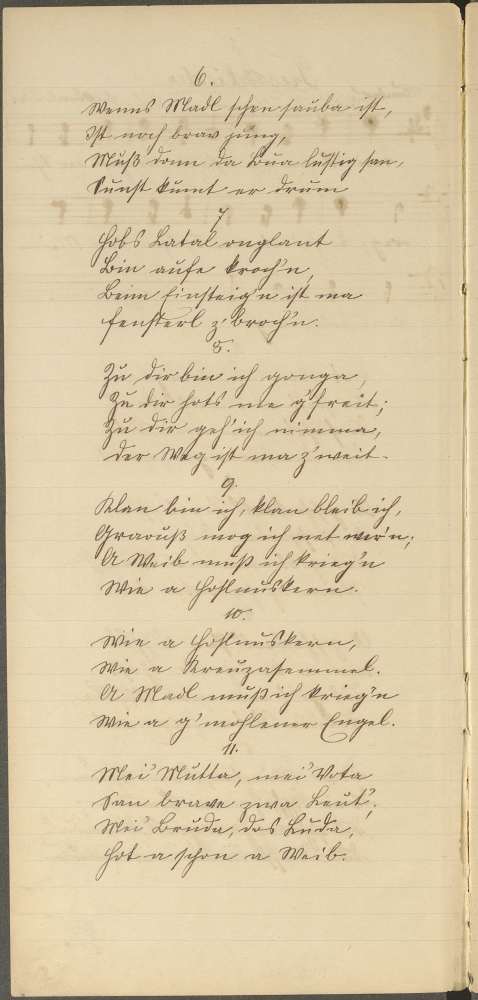 6.
Wenns Madl schen sauba ist,
Ist noch brav jung,
Muß dann da Bua lustig san,
Sunst kummt er drum
7
Hobs Latal onglant
Bin aufe kroch'n,
Beim Einsteig'n ist ma
Fensterl z'broch'n.
8.
Zu dir bin ich gonga,
Zu dir hots me g'freit;
Zu dir geh' ich nimma,
Der Weg ist ma z'weit.
9.
Klan bin ich, klan bleib ich,
Graouß mog ich net wer'n;
A Weib muß ich krieg'n
Wie a Hoslnuskern.
10.
Wie a Hoslnuskern,
Wie a Kreuzasemmel.
A Madl muß ich krieg'n
Wie a g'mohlener Engel.
11.
Mei' Mutta, mei' Vota
San brave zwa Leut',
Mei' Bruda, das Luda,
Hot a schon a Weib.